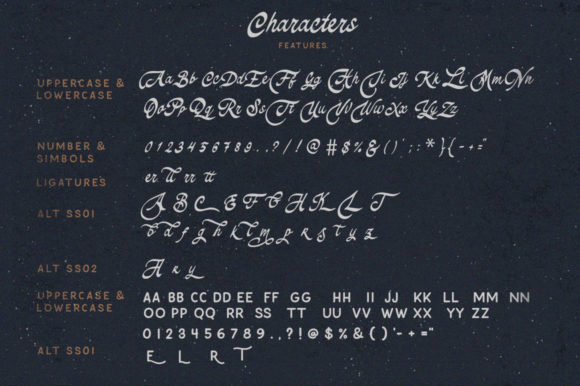 Characters
FEATURES
UPPERCASE &
LOWERCASE
AaBb CcDdEeFf Gg HhIiJj KkLlMmNn
OoPpQq RrSsTt UuVvWwXx YyZz
NUMBER &
SIMBOLS
0123456789.,?/!@#$%&()';:*}{-+="
LIGATURES
er ll rr tt
ALT SS01
A B C E F G H K L T
d f g h k l m o r s t y z
ALT SS02
A r y
UPPERCASE &
LOWERCASE
AA BB CC DD EE FF GG HH II JJ KK LL MM NN
OO PP QQ RR SS TT UU VV WW XX YY ZZ
0123456789.,?!@$%&()'-+="
ALT SS01
E L R T